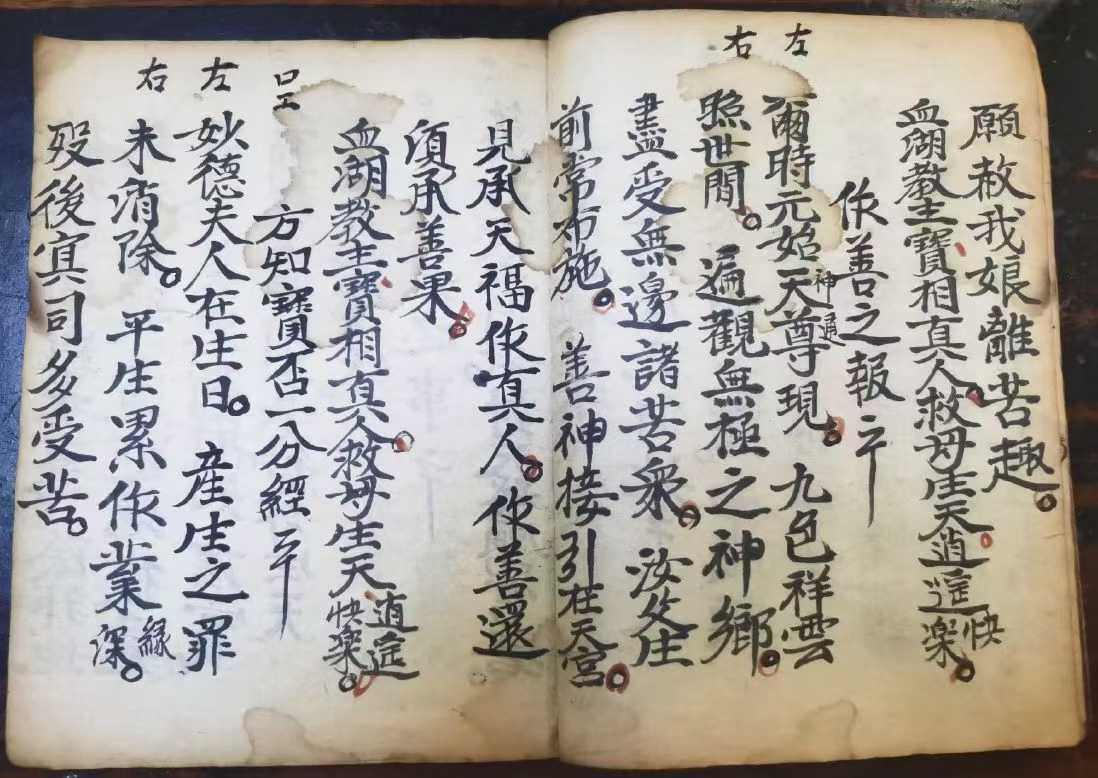 願赦我娘離苦趣。
血湖教主寶相真人救母生天逍遥快楽。
作善之報
左
爾時元始天尊現神通。九色祥雲
右
照世間。遍觀無極之神鄉。
盡受無邊諸苦衆。汝等在生
前常布施。善神接引在天宫。
見承天福作真人。作善還
須承善果。
血湖教主寶相真人救母生天逍遥快楽。
方知寳否一分經
左
妙德夫人在生日。産生之罪
右
未消除。平生累作業緣深。
殁後冥司多受苦。